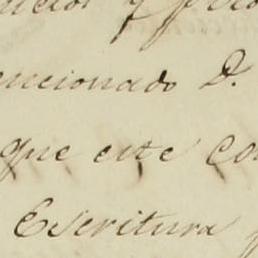 y
encionado D.
que este co
Escritura